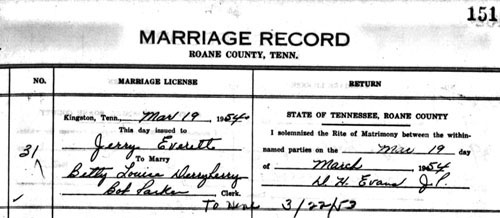 151
MARRIAGE RECORD
ROANE COUNTY, TENN.
NO. MARRIAGE LICENSE RETURN
Kingston, Tenn., Mar 19, 1954
This day issued to
Jerry Everett
To Marry
Betty Louise Derryberry
Bob Parker Clerk.
STATE OF TENNESSEE, ROANE COUNTY
I solemnized the Rite of Matrimony between the within-
named parties on the 19 day
of March 1954
D. H. Evans J.P.
31
3/22/53